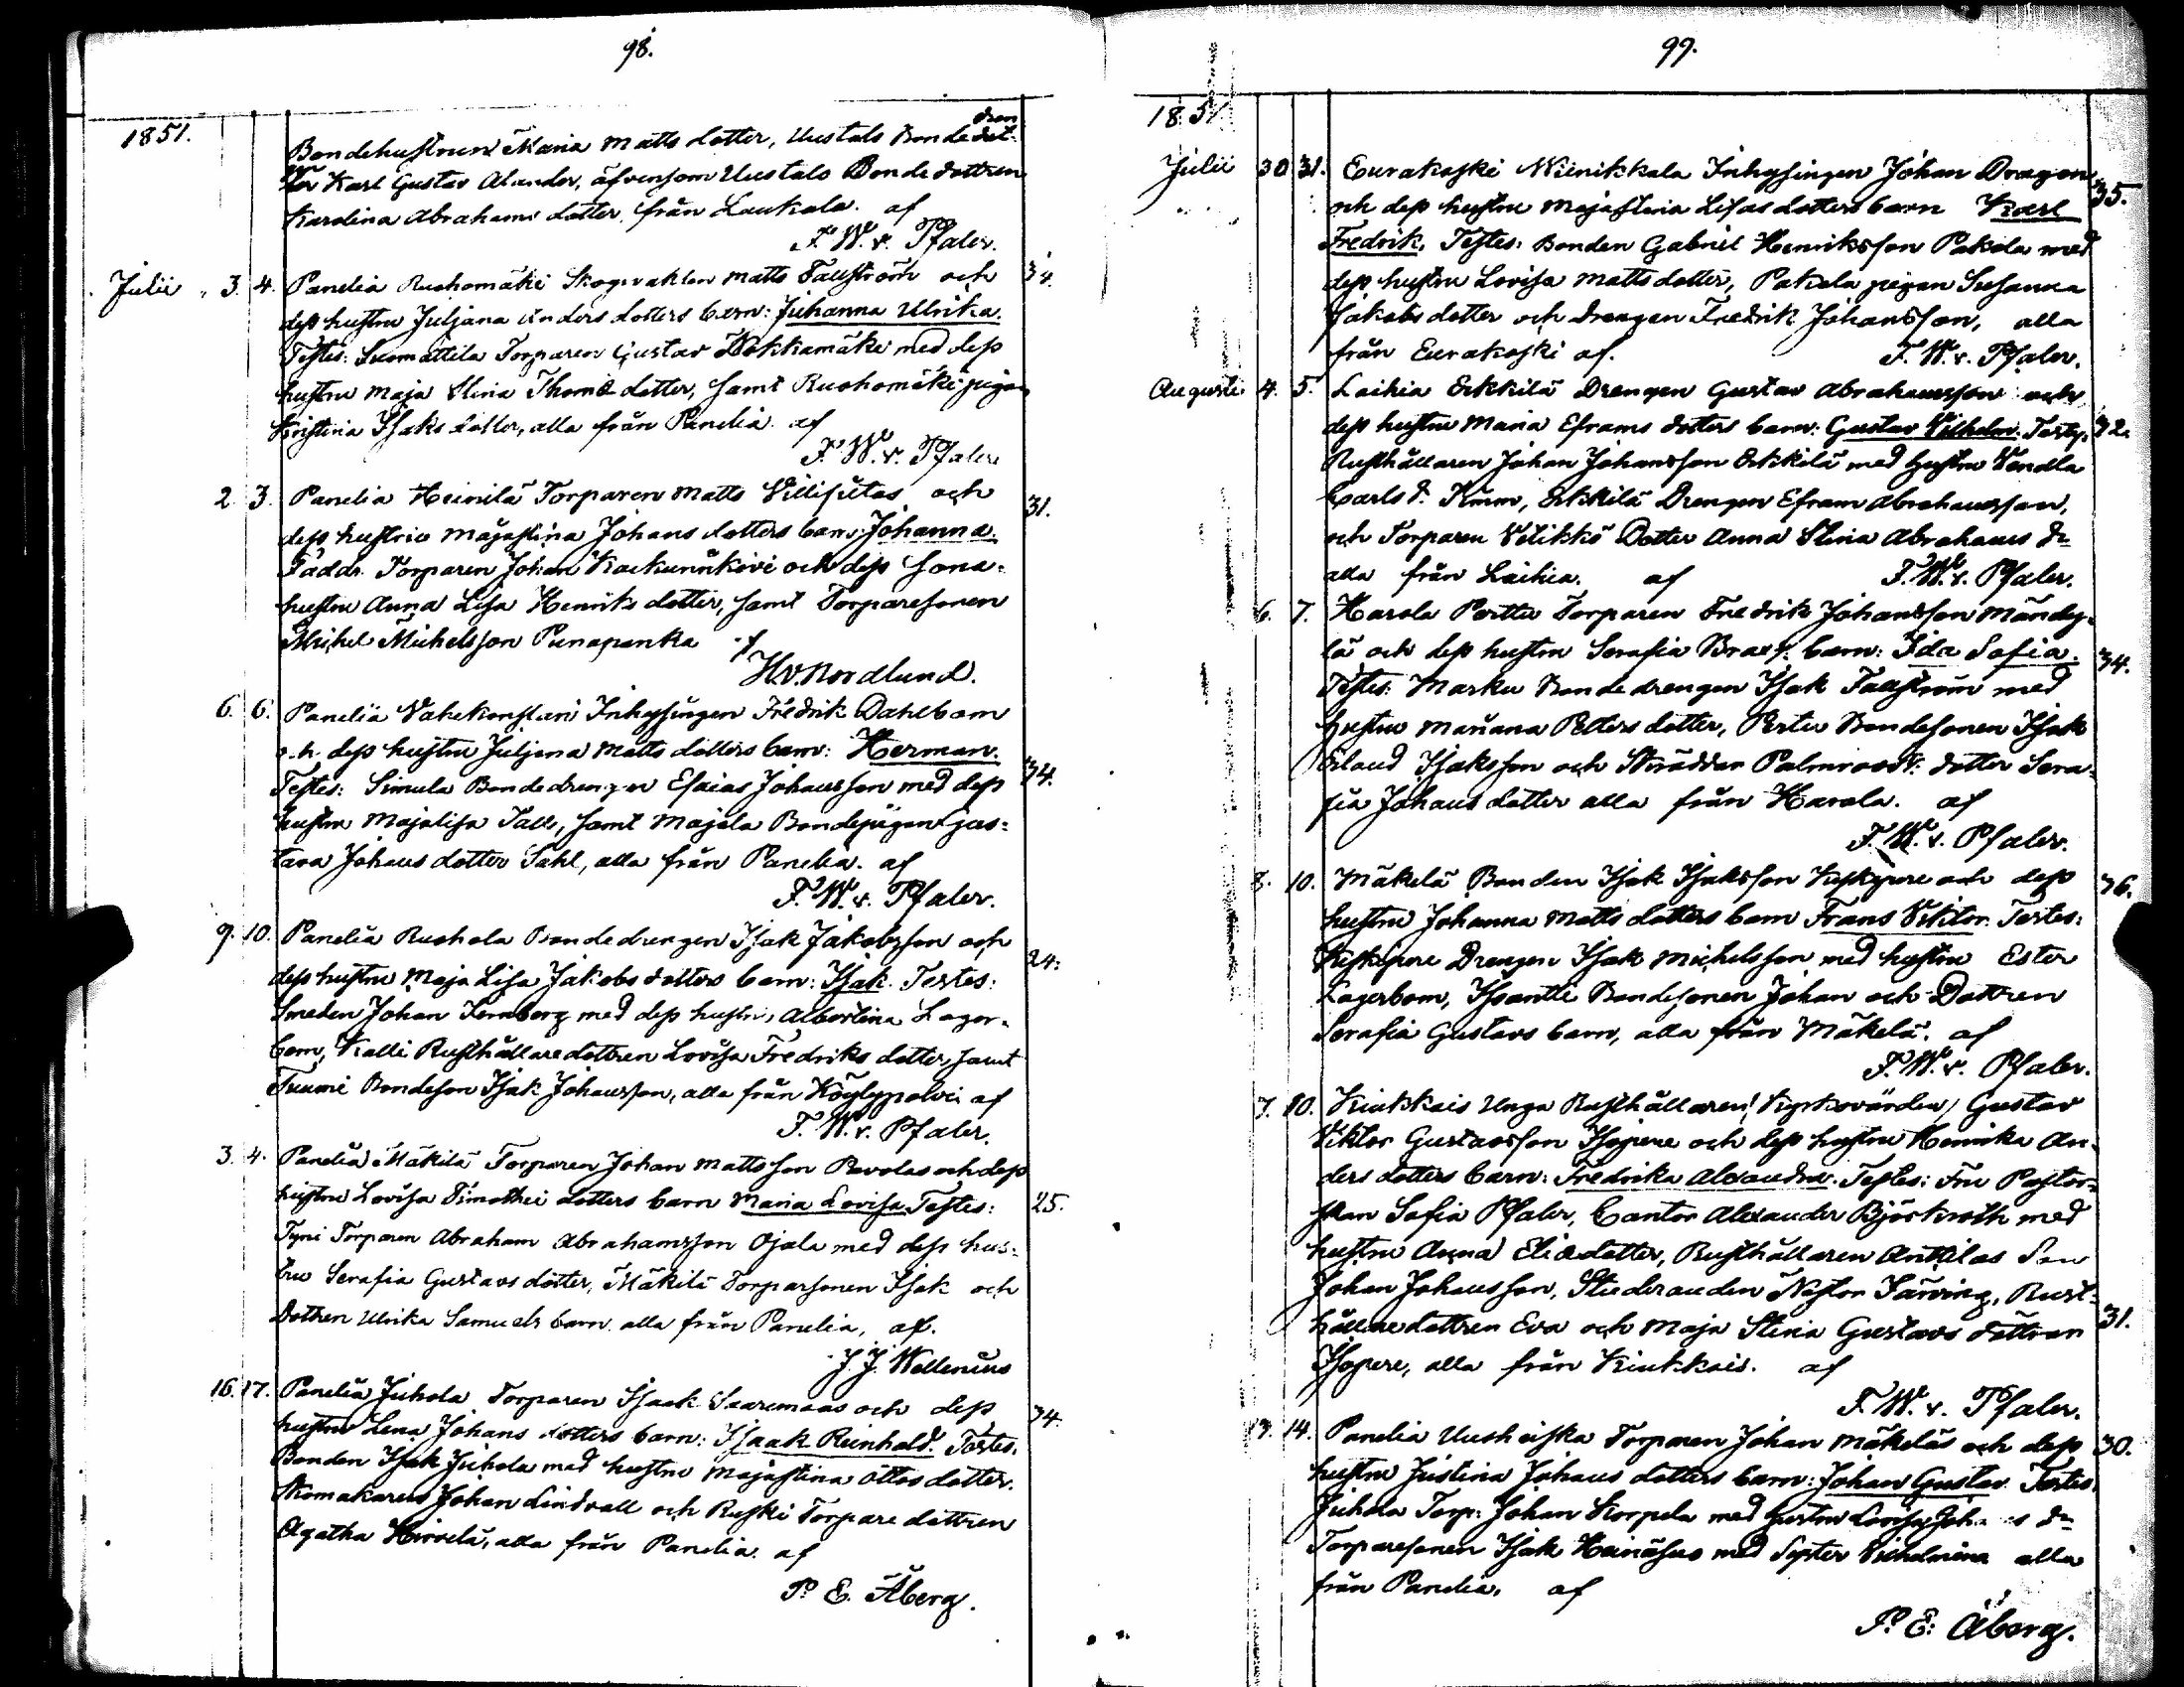 98.
1851.
Bondehustrun Maria Matts dotter, Uustalo Bondedot-
dren
ter Karl Gustav Alander, äfvensom Uustalo Bondedottren
Karolina Abrahams dotter från Laukola. af
F. W. v. Pfaler.
Julii 3. 4. Panelia Ruohomäki Skogvakten Matts Fallström och 34.
dess hustru Juljana Anders dotters barn: Juhanna Ulrika.
Testes: Suomattila Torparen Gustav Kokkamäki med dess
hustru Maja Stina Thomæ dotter, samt Ruohomäki pigan
Kristina Isaks dotter, alla från Panelia. af
F. W. v. Pfaler
2. 3. Panelia Heinilä Torparen Matts Villisutas och 31.
dess hustru Majastina Johans dotters barn: Johanna.
Faddr. Torparen Johan Kaukunnkivi och dess sona-
hustru Anna Lisa Henriks dotter, samt Torparesonen
Mikel Michelsson Punapanka af
H. v. Nordlund.
6. 6. Panelia Vakkonstari Inhysingen Fredrik Dahlbom
och dess hustru Juljana Matts dotters barn: Herman. 34.
Testes: Simula Bondedrengen Esaias Johansson med dess
hustru Majalisa Tall, samt Majala Bondepigan Gus-
tava Johans dotter Sahl, alla från Panelia. af
F. W. v. Pfaler.
9. 10. Panelia Ruohola Bondedrengen Isak Jakobsson och 24.
dess hustru Maja Lisa Jakobs dotters barn: Isak. Testes:
Smeden Johan Jernberg med dess hustru Albertina Lager-
bom, Kalli Rusthållaredottren Lovisa Fredriks dotter, samt
Tuumi Bondeson Isak Johansson, alla från Köylypolvi af
F. W. v. Pfaler.
3. 4. Panelia Mäkilä Torparen Johan Mattsson Pavolas och dess
hustru Lovisa Timothei dotters barn Maria Lovisa. Testes: 25.
Tyni Torparen Abraham Abrahamsson Ojala med dess hus-
tru Serafia Gustavs dotter, Mäkilä Torparsonen Isak och
Dottren Ulrika Samuels barn. alla från Panelia, af.
J. J. Wallenius
16. 17. Panelia Juhola Torparen Isaak Saaremaas och dess 34.
hustru Lena Johans dotters barn: Isaak Reinhold. Testes.
Bonden Isak Juhola med hustru Majastina Ottos dotter.
Skomakaren Johan Lindvall och Ruski Torpare dottren
Agatha Hirvelä, alla från Panelia. af
P. E. Åberg.
99.
1851
Julii 30 31. Eurakoski Niinikkala Inhysingen Johan Dragon 35.
och dess hustru Majastina Lisas dotters barn Karl
Fredrik. Testes: Bonden Gabriel Henriksson Pakola med
dess hustru Lovisa Matts dotter, Pakola pigan Susanna
Jakobs dotter och Drengen Fredrik Johansson, alla
från Eurakoski af. F. W. v. Pfaler.
Augusti 4. 5. Laihia Erkkilä Drengen Gustav Abrahamsson och
dess hustru Maria Eframs dotters barn: Gustav Vilhelm. Testes: 32.
Rusthållaren Johan Johansson Erkkilä med hustru Vendla
Carls d. Kumm, Erkkilä Drengen Efram Abrahamsson,
och Torparen Välikkö Dotter Anna Stina Abrahams dr
alla från Laihia. af F. W. v. Pfaler.
6. 7. Harola Perttu Torparen Fredrik Johansson Mändy-
lä och dess hustru Serafia Brax's barn: Ida Sofia. 34.
Testes: Marku Bondedrengen Isak Faaström med
hustru Mariana Petters dotter, Perttu Bondesonen Isak
Erland Isaksson och Skräddar Palmroos's dotter Sera-
fia Johans dotter alla från Harola. af
F. W. v. Pfaler.
8. 10. Mäkelä Bonden Isak Isaksson Keskipere och dess 36.
hustru Johanna Matts dotters barn Frans Viktor. Testes:
Keskipere Drengen Isak Michelsson med hustru Ester
Lagerbom, Isoantti Bondesonen Johan och Dottren
Serafia Gustavs barn, alla från Mäkelä. af
F. W. v. Pfaler.
7. 10. Kiukkais Unga Rusthållaren (Kyrkovärden) Gustav
Viktor Gustavsson Isopere och dess hustru Henrika An-
ders dotters barn: Fredrika Alexandra. Testes: Fru Pastor-
skan Sofia Pfaler, Cantor Alexander Björkroth med
hustru Anna Eliædotter, Rusthållaren Anttilas Son
Johan Johansson, Studeranden Nestor Järving, Rust-
hållaredottren Eva och Maja Stina Gustavs döttrar 31.
Isopere, alla från Kiukkais. af
F. W. v. Pfaler.
13. 14. Panelia Uusheiska Torparen Johan Mäkeläs och dess 30.
hustru Justina Johans dotters barn: Johan Gustav. Testes.
Juhola Torp: Johan Korpela med hustru Lovisa Johans dr
Torparesonen Isak Heinäsuo med Syster Vilhelmina alla
från Panelia. af
P. E. Åberg.